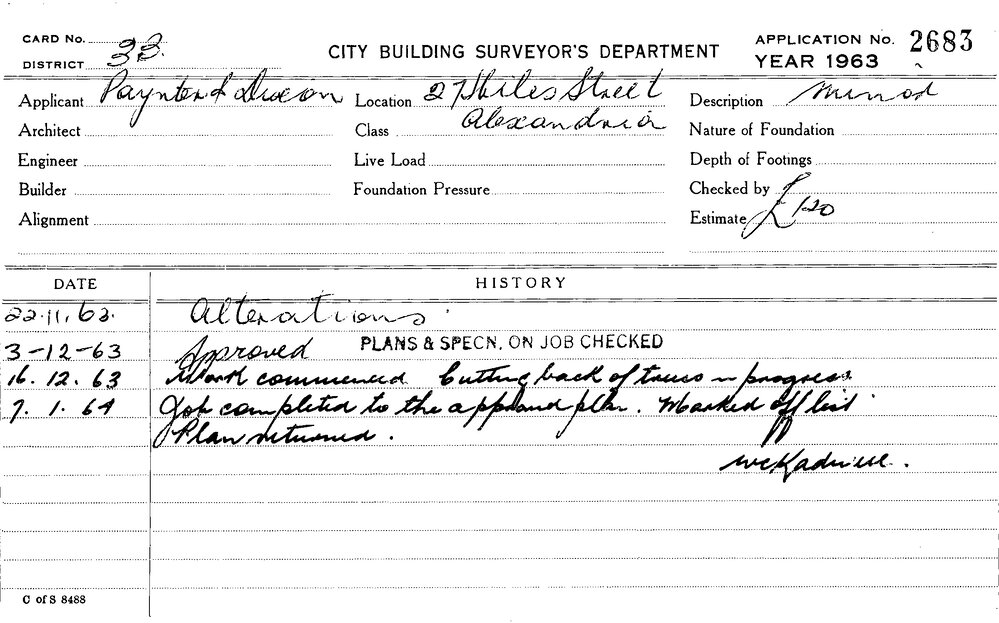 CARD No.
DISTRICT 33.
CITY BUILDING SURVEYOR'S DEPARTMENT
APPLICATION No. 2683
YEAR 1963
Applicant Paynter & Dixon
Location 27 Hiles Street
Alexandria
Description Minor
Architect
Class
Nature of Foundation
Engineer
Live Load
Depth of Footings
Builder
Foundation Pressure
Checked by
Alignment
Estimate £120
DATE
HISTORY
22.11.63. Alterations
3-12-63 Approved PLANS & SPECN. ON JOB CHECKED
16. 12. 63 Work commenced Cutting back of truss in progress
7. 1. 64 Job completed to the approved plan. Marked off list
Plan returned.
C of S 8488